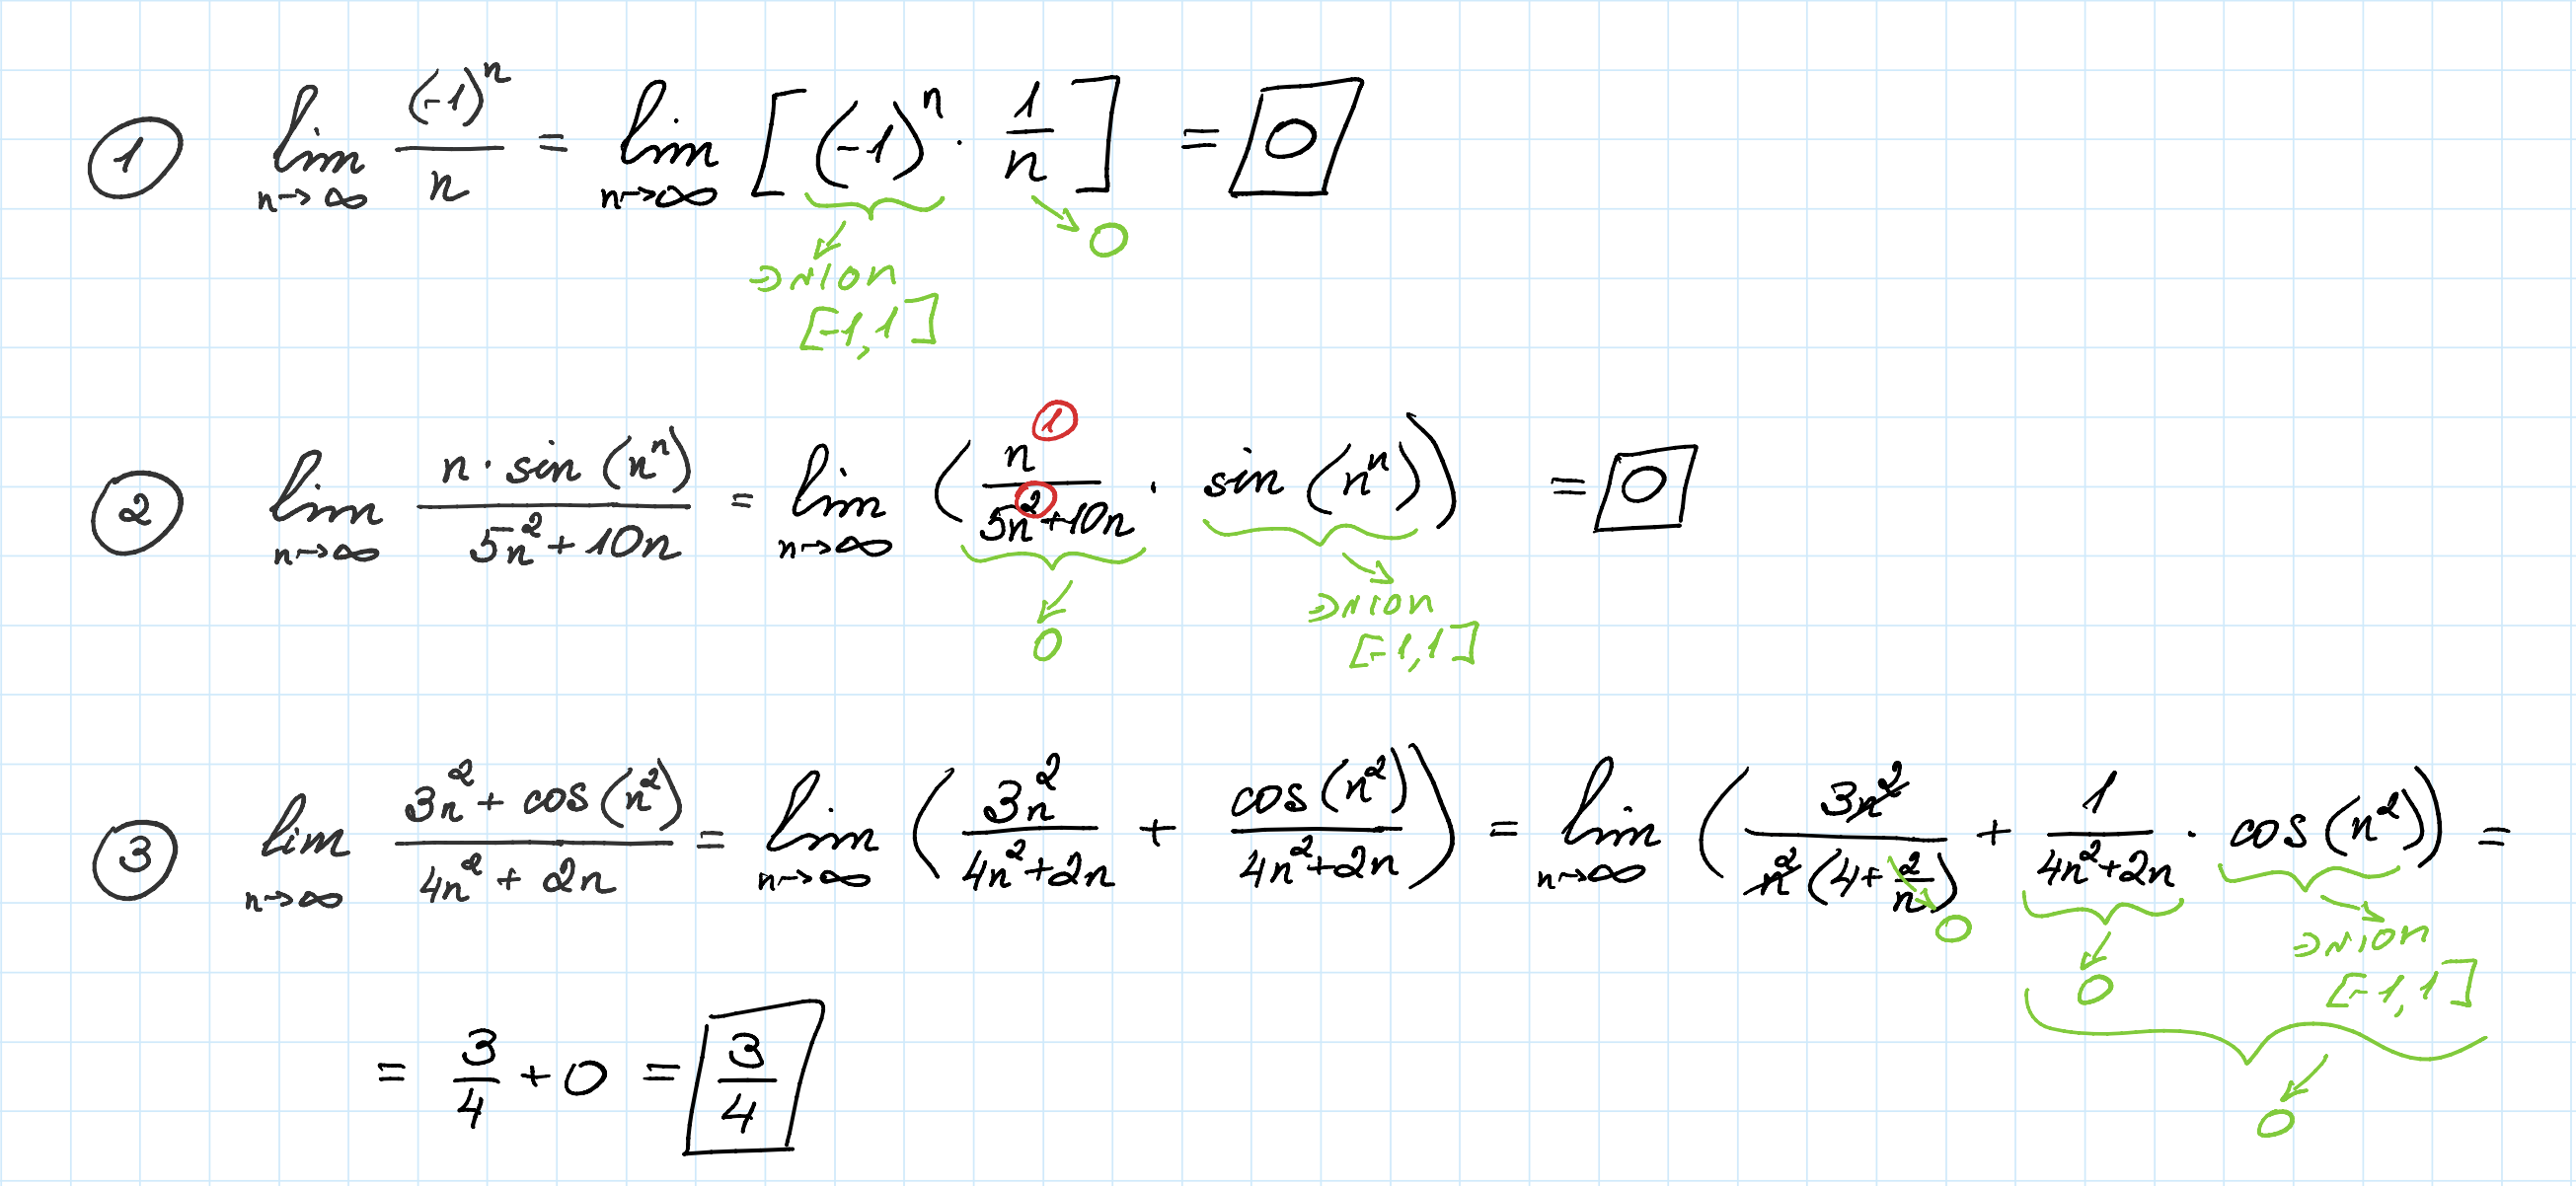 ① lim n→∞ (-1)^n / n = lim n→∞ [ (-1)^n · 1/n ] = 0
0
[-1,1]
② lim n→∞ n · sin (n^n) / 5n^2 + 10n = lim n→∞ ( n^1 / 5n^2 + 10n · sin (n^n) ) = 0
0
[-1,1]
③ lim n→∞ 3n^2 + cos (n^2) / 4n^2 + 2n = lim n→∞ ( 3n^2 / 4n^2 + 2n + cos (n^2) / 4n^2 + 2n ) = lim n→∞ ( 3n^2 / n^2 (4 + 2/n) + 1 / 4n^2 + 2n · cos (n^2) ) =
0
0
[-1,1]
= 3/4 + 0 = 3/4
0